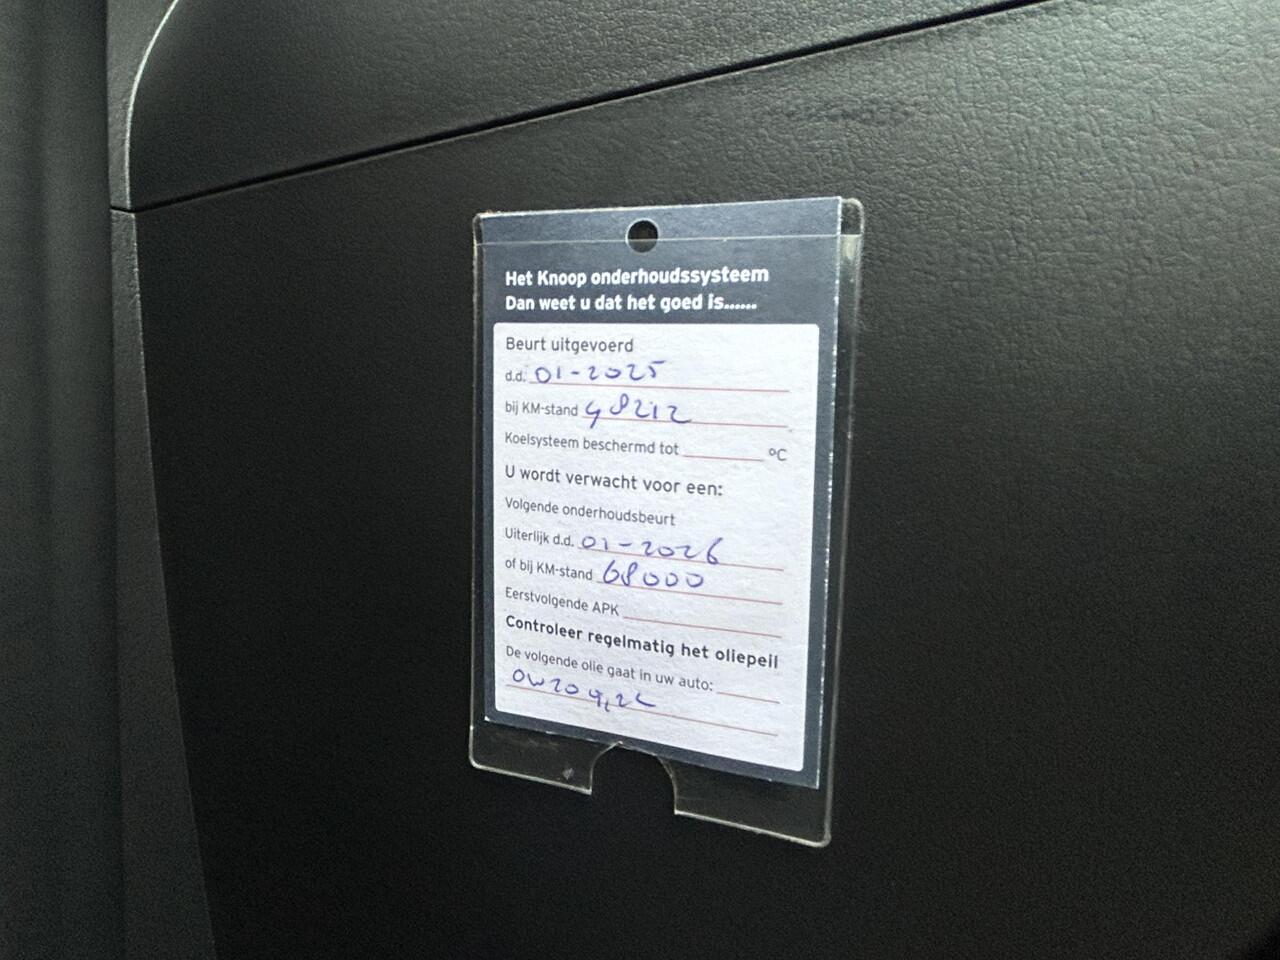 Het Knoop onderhoudssysteem
Dan weet u dat het goed is......
Beurt uitgevoerd
d.d. 01-2025
bij KM-stand 48212
Koelsysteem beschermd tot ______ °C
U wordt verwacht voor een:
Volgende onderhoudsbeurt
Uiterlijk d.d. 01-2026
of bij KM-stand 68000
Eerstvolgende APK
Controleer regelmatig het oliepeil
De volgende olie gaat in uw auto:
0W20 4,2L